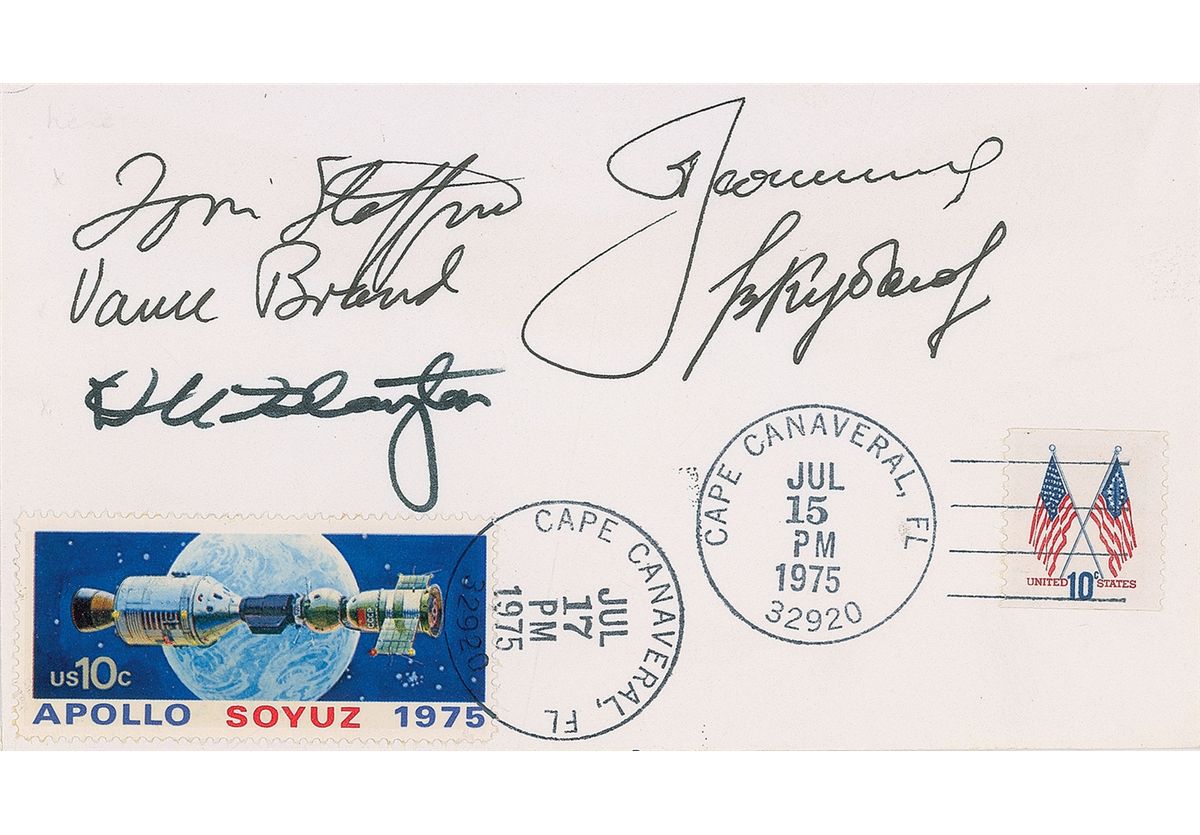 Tom Stafford
Vance Brand
D K Slayton
Леонов
В Кубасов
CAPE CANAVERAL, FL
JUL
15
PM
1975
32920
UNITED 10c STATES
CAPE CANAVERAL, FL
JUL
17
PM
1975
32920
US10c
APOLLO SOYUZ 1975